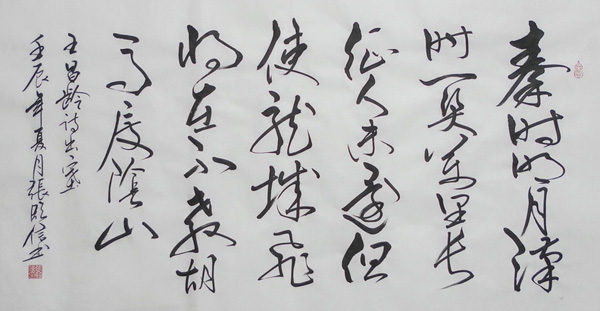 秦时明月漢
时关万里长
征人未還但
使龙城飛
将在不教胡
马度陰山
王昌龄诗出塞
壬辰年夏月張明信书